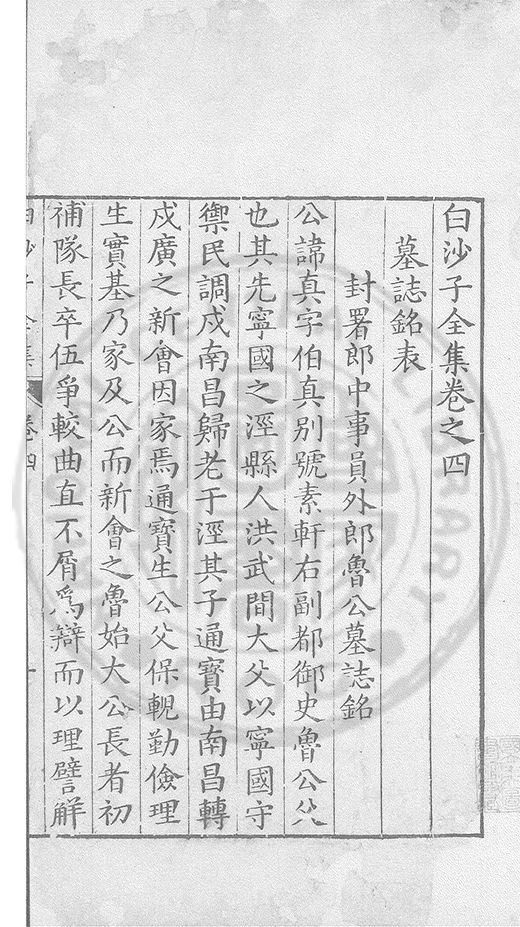 白沙子全集卷之四
墓誌銘表
封署郎中事員外郎魯公墓誌銘
公諱真字伯真别號素軒右副都御史魯公父
也其先寧國之涇縣人洪武間大父以寧國守
禦民調戍南昌歸老于涇其子通寶由南昌轉
戍廣之新會因家焉通寶生公父保輗勤儉理
生實基乃家及公而新會之魯始大公長者初
補隊長卒伍爭較曲直不屑為辯而以理譬解
白沙子全集 卷四